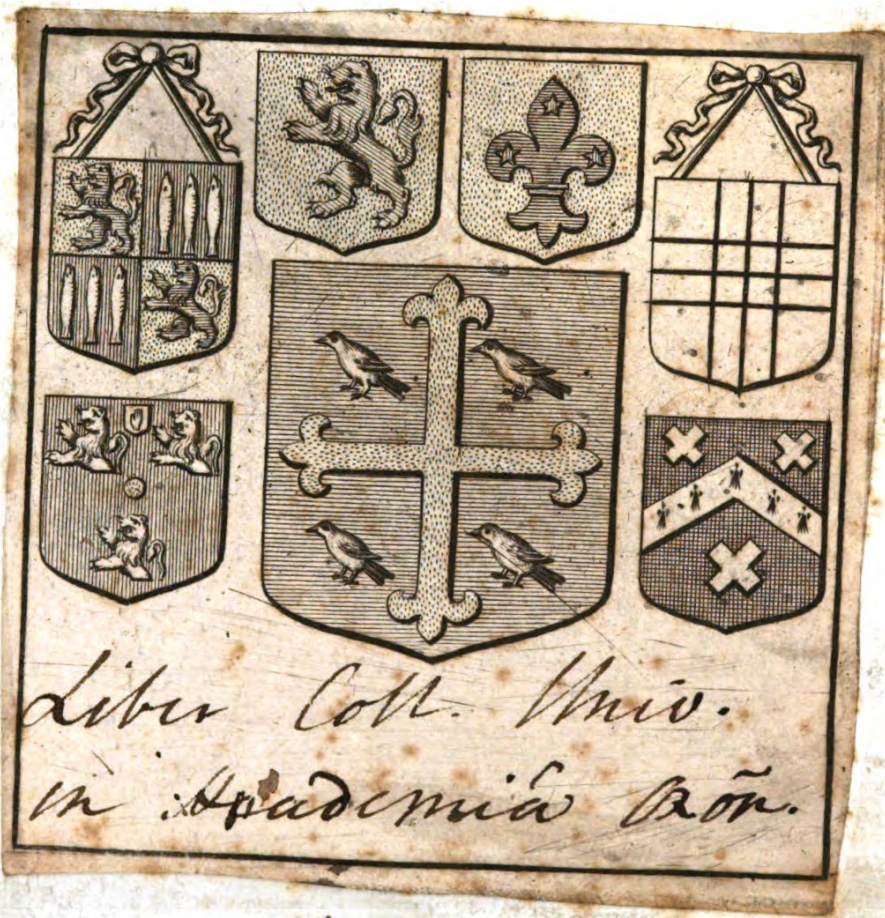 Liber Coll. Univ.
in Academiâ Oxōn.